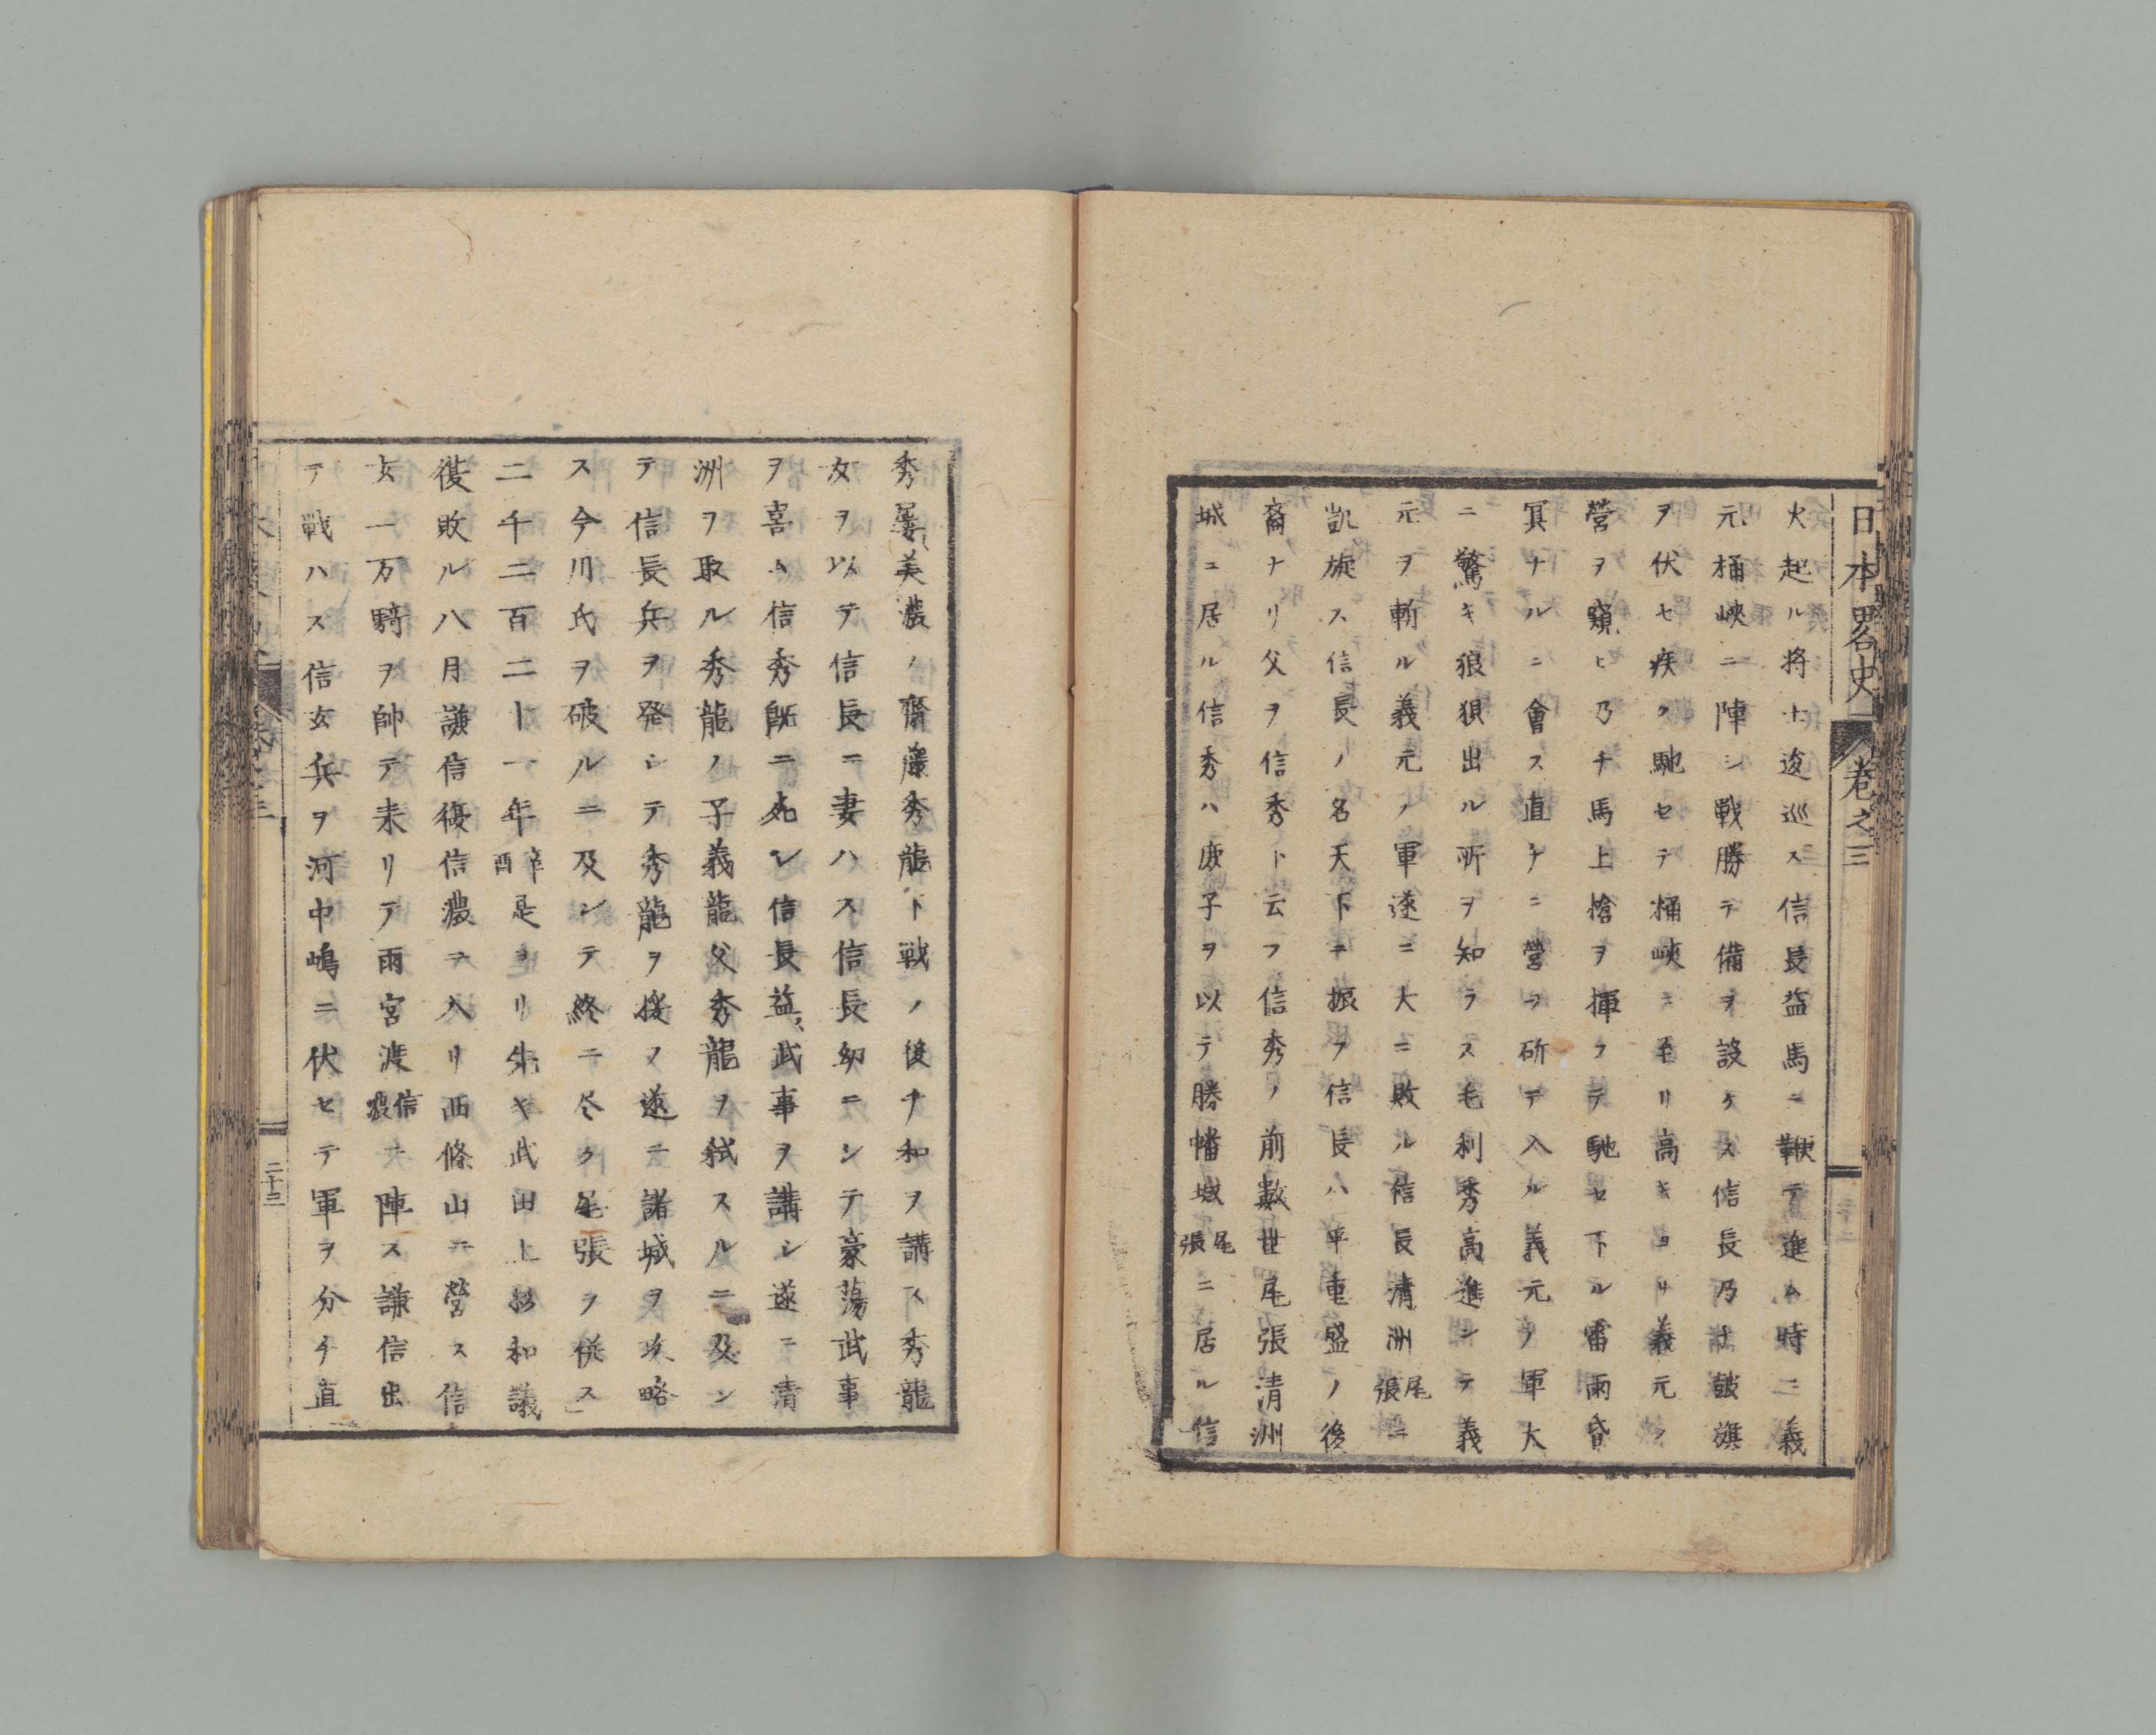 日本畧史 卷之三
火起ル将士逡巡ス信長益馬ニ鞭テ進ム時ニ義
元桶峽ニ陣シ戰勝テ備ヲ設ケス信長乃チ皷旗
ヲ伏セ疾ク馳セテ桶峽ニ至リ高キヨリ義元ノ
營ヲ窺ヒ乃チ馬上槍ヲ揮フテ馳セ下ル雷雨昏
冥ナルニ會ス直チニ營ヲ斫テ入ル義元ノ軍大
ニ驚キ狼狽出ル所ヲ知ラス毛利秀高進ンテ義
元ヲ斬ル義元ノ軍遂ニ大ニ敗ル信長清洲尾張ニ
凱旋ス信長ノ名天下ニ振フ信長ハ平重盛ノ後
裔ナリ父ヲ信秀ト云フ信秀ノ前數世尾張清洲
城ニ居ル信秀ハ庶子ヲ以テ勝幡城尾張ニ居ル信
秀屢美濃ノ齋藤秀龍ト戦ノ後チ和ヲ講ス秀龍
女ヲ以テ信長ニ妻ハス信長幼ニシテ豪蕩武事
ヲ喜ム信秀既ニ死シ信長益武事ヲ講シ遂ニ清
洲ヲ取ル秀龍ノ子義龍父秀龍ヲ弑スルニ及ン
テ信長兵ヲ発シテ秀龍ヲ援ヌ遂ニ諸城ヲ攻略
ス今川氏ヲ破ルニ及ンテ終ニ尽ク尾張ヲ併ス」
二千二百二十一年辛酉是ヨリ先キ武田上杉和議
復敗ル八月謙信復信濃ニ入リ西條山ニ營ス信
玄一万騎ヲ帥テ来リテ雨宮渡信濃ニ陣ス謙信出
テ戰ハス信玄兵ヲ河中嶋ニ伏セテ軍ヲ分チ直
二十三